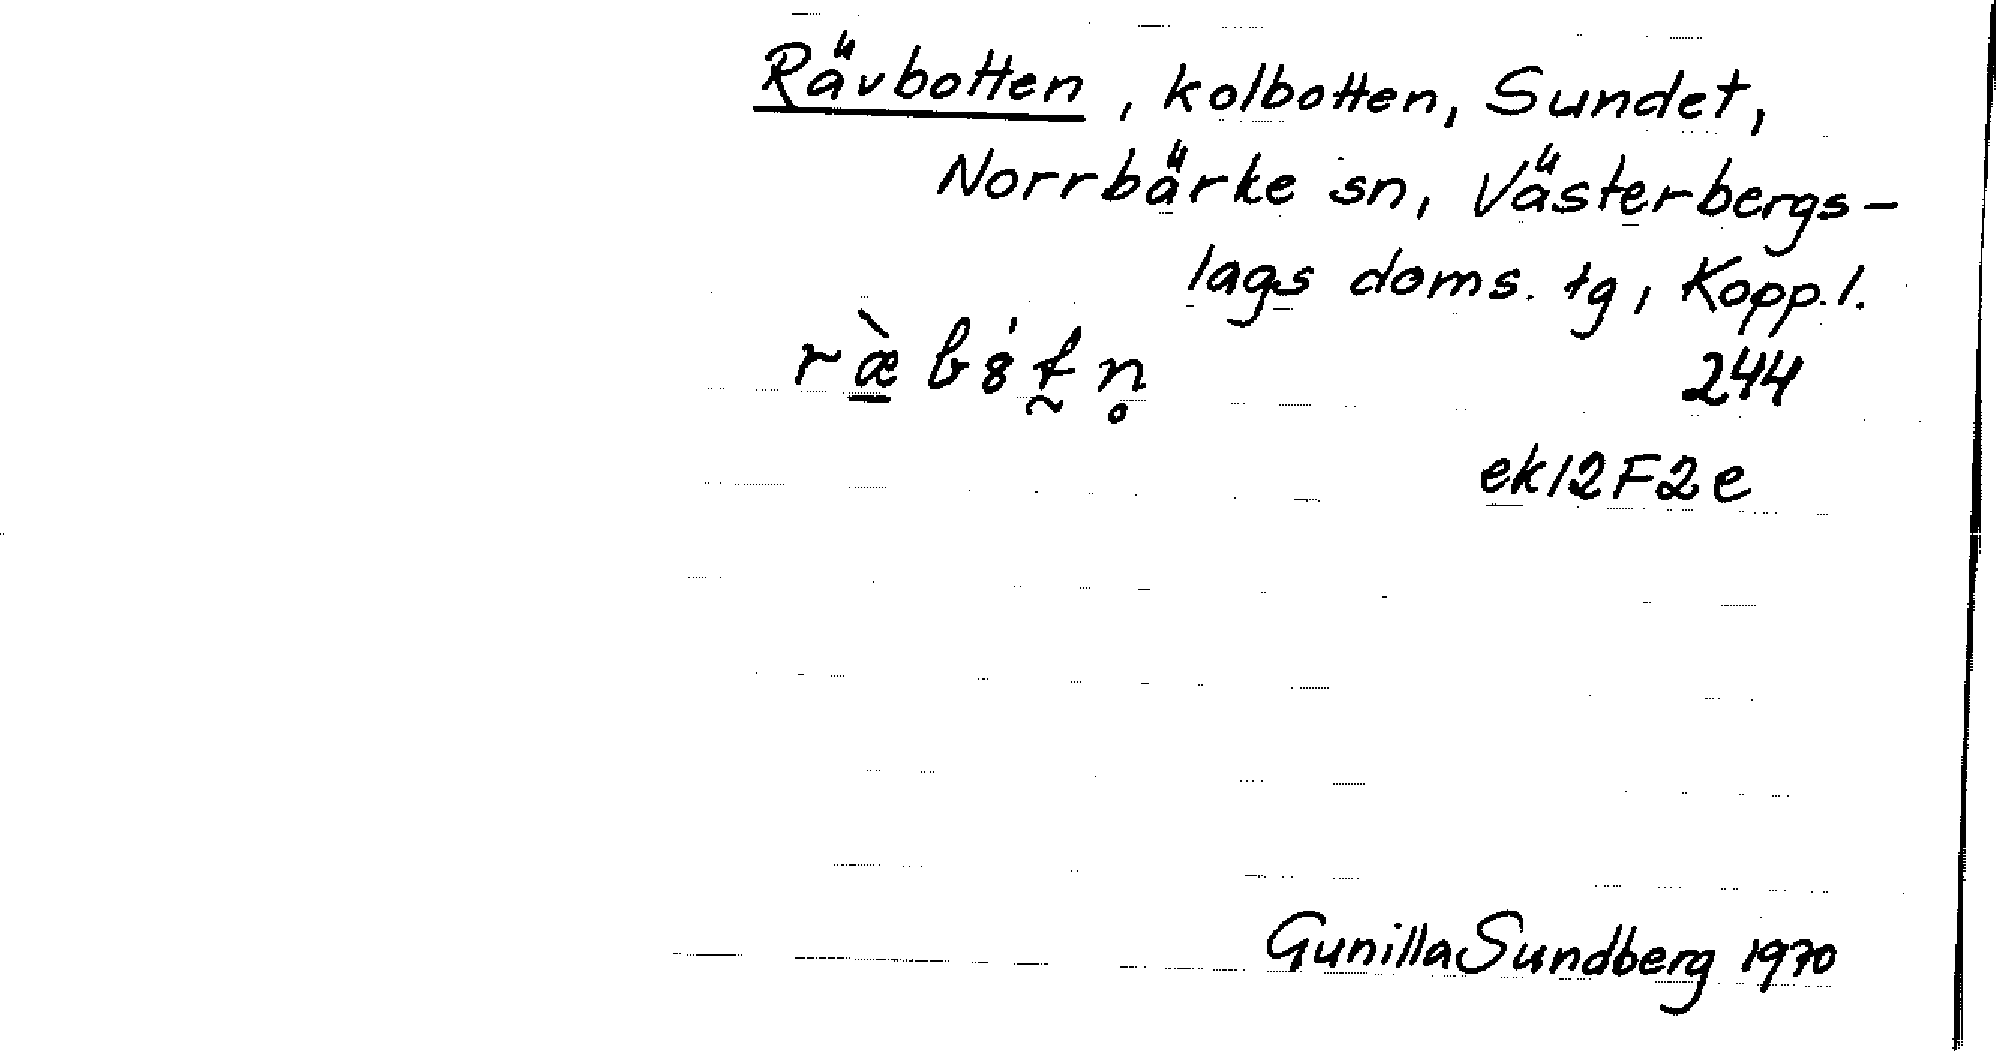 Rävbotten, kolbotten, Sundet,
Norrbärke sn, Västerbergs-
lags doms. tg, Kopp. l.
244
ek12F2e
Gunilla Sundberg 1970